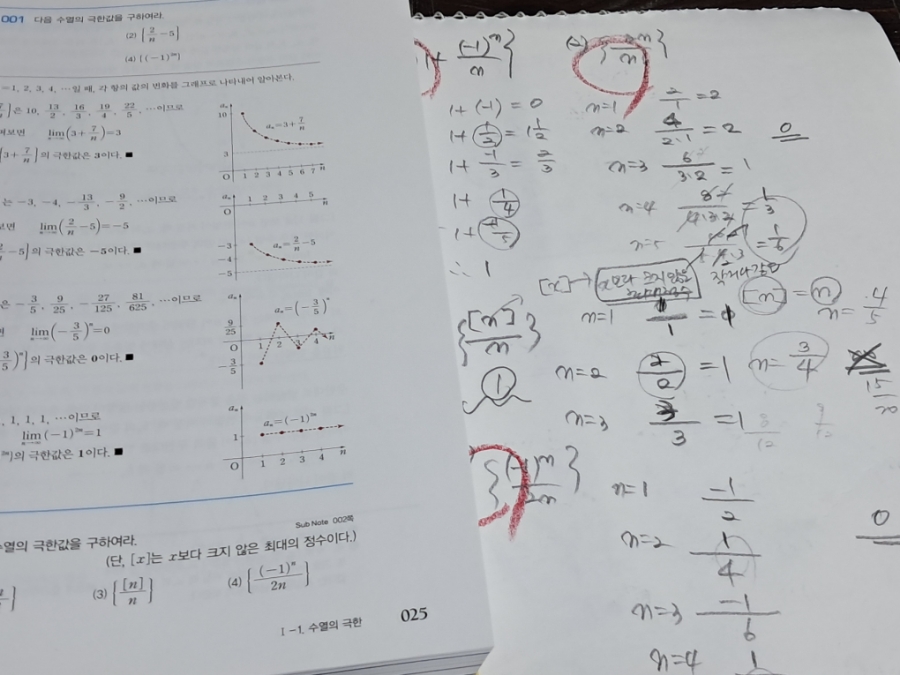 001 다음 수열의 극한값을 구하여라.
(2) {2/n - 5}
(4) {(-1)²ⁿ}
=1, 2, 3, 4, …일 때, 각 항의 값의 변화를 그래프로 나타내어 알아본다.
은 10, 13/2, 16/3, 19/4, 22/5, …이므로
보면 lim n→∞ (3+7/n)=3
{3+7/n}의 극한값은 3이다. ■
aₙ
10
3
O
1 2 3 4 5 6 7 n
aₙ=3+7/n
는 -3, -4, -13/3, -9/2, …이므로
보면 lim n→∞ (2/n-5)=-5
-5}의 극한값은 -5이다. ■
aₙ
O
1 2 3 4 5 n
-3
-4
-5
aₙ=2/n-5
은 -3/5, 9/25, -27/125, 81/625, …이므로
면 lim n→∞ (-3/5)ⁿ=0
3/5)ⁿ}의 극한값은 0이다. ■
aₙ
9/25
O
-3/5
1 2 3 4 n
aₙ=(-3/5)ⁿ
, 1, 1, 1, …이므로
lim n→∞ (-1)²ⁿ=1
의 극한값은 1이다. ■
aₙ
1
O
1 2 3 4 n
aₙ=(-1)²ⁿ
Sub Note 002쪽
수열의 극한값을 구하여라.
(단, [x]는 x보다 크지 않은 최대의 정수이다.)
(3) {[n]/n}
(4) {(-1)ⁿ/2n}
Ⅰ-1. 수열의 극한
025
1+ (-1)ⁿ/n}
1+(-1)=0
1+(1/2)=1 1/2
1+ -1/3 = 2/3
1+ 1/4
∴ 1
n=1 2/1=2
n=2 4/2·1=2
0
n=3 6/3·2=1
n=4 =1/3
n=5 =1/6
[x]→ x보다 크지 않은
작거나 같은
[n]=n
n=4/5
{[n]/n}
n=1 1/1=1
1
n=2 2/2=1
n=3/4
15/20
n=3 3/3=1
{(-1)ⁿ/2n}
n=1 -1/2
0
n=2 1/4
n=3 -1/6
n=4 1